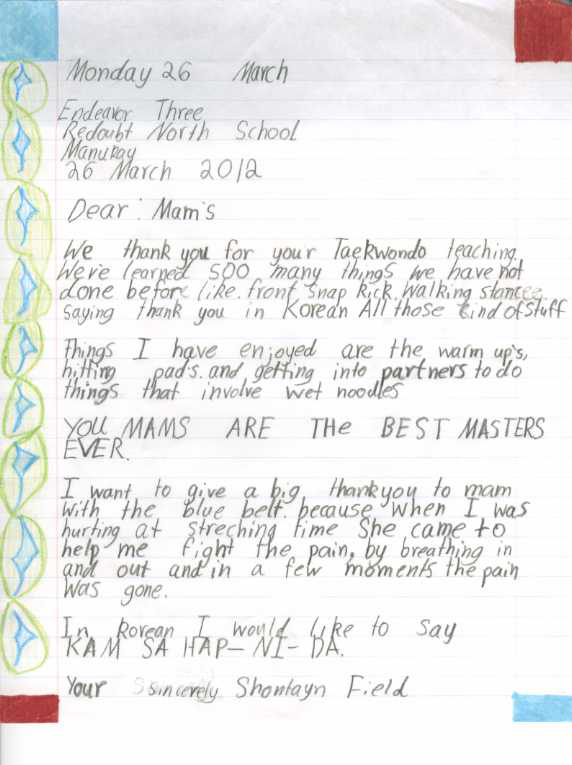 Monday 26 March
Endeavor Three
Redoubt North School
Manukay
26 March 2012
Dear: Mam's
We thank you for your Taekwondo teaching.
We've learned SOO many things we have not
done before like. front snap kick, walking stances
saying thank you in Korean All those kind of stuff
Things I have enjoyed are the warm up's,
hitting pad's. and getting into partners to do
things that involve wet noodles
YOU MAMS ARE THE BEST MASTERS
EVER.
I want to give a big thankyou to mam
with the blue belt. because when I was
hurting at streching time She came to
help me fight the pain, by breathing in
and out and in a few moments the pain
was gone.
In Korean I would like to say
KAM SA HAP-NI-DA.
Your sincerely Shontayn Field